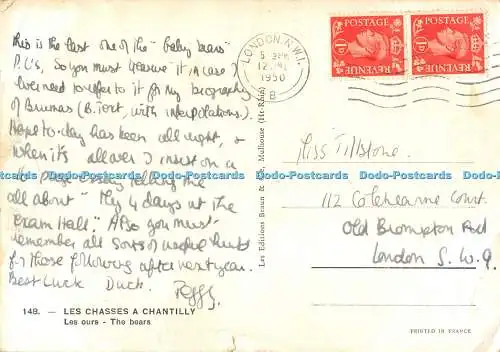 This is the last one of the "baby bears"
P.C's, so you must preserve it in case I
ever need to refer to it for my biography
of Brumas (B. Text, with interpolations).
Hope to-day has been all right, &
when it's all over I insist on a
page essay telling me
all about "My 4 days at the
Exam Hall". Also you must
remember all sorts of useful hints
for those following after next year.
Best Luck Duck.
Peggy.
148. — LES CHASSES A CHANTILLY
Les ours - The bears
Les Editions Braun & Cie, Mulhouse (Ht-Rhin)
LONDON. N.W.1.
1950
B
POSTAGE
1D
REVENUE
POSTAGE
1D
REVENUE
Miss Tillstone.
112 Coleherne Court.
Old Brompton Road
London S.W.9
PRINTED IN FRANCE
Dodo-Postcards Dodo-Postcards Dodo-Postcards Dodo-Postcards Dodo-Postcards